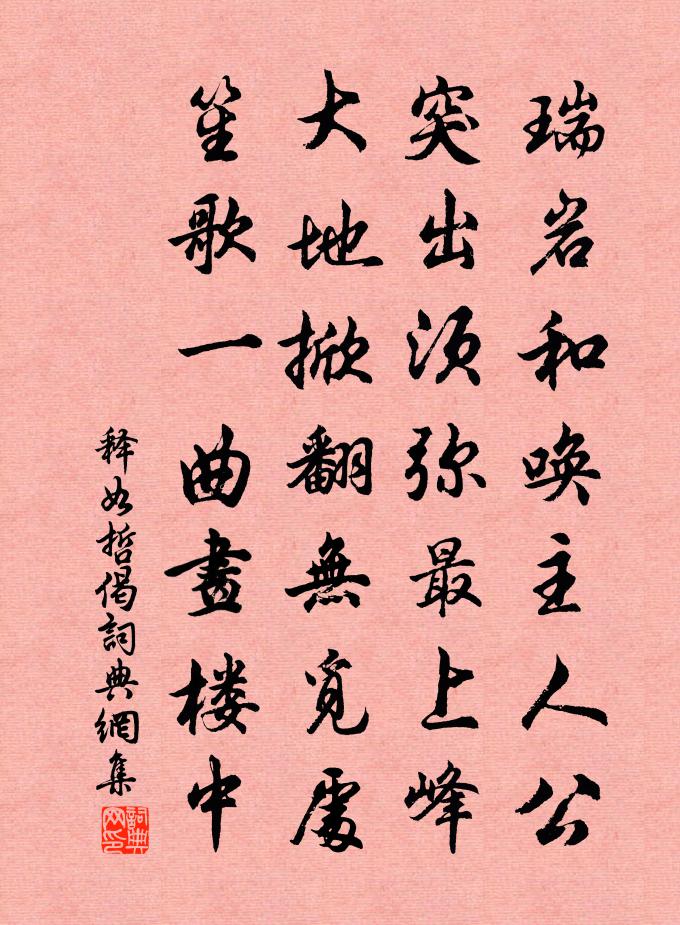 瑞岩和唤主人公
突出须弥最上峰
大地掀翻無覓處
笙歌一曲畫楼中
释如哲偈詞典網集
詞典网印